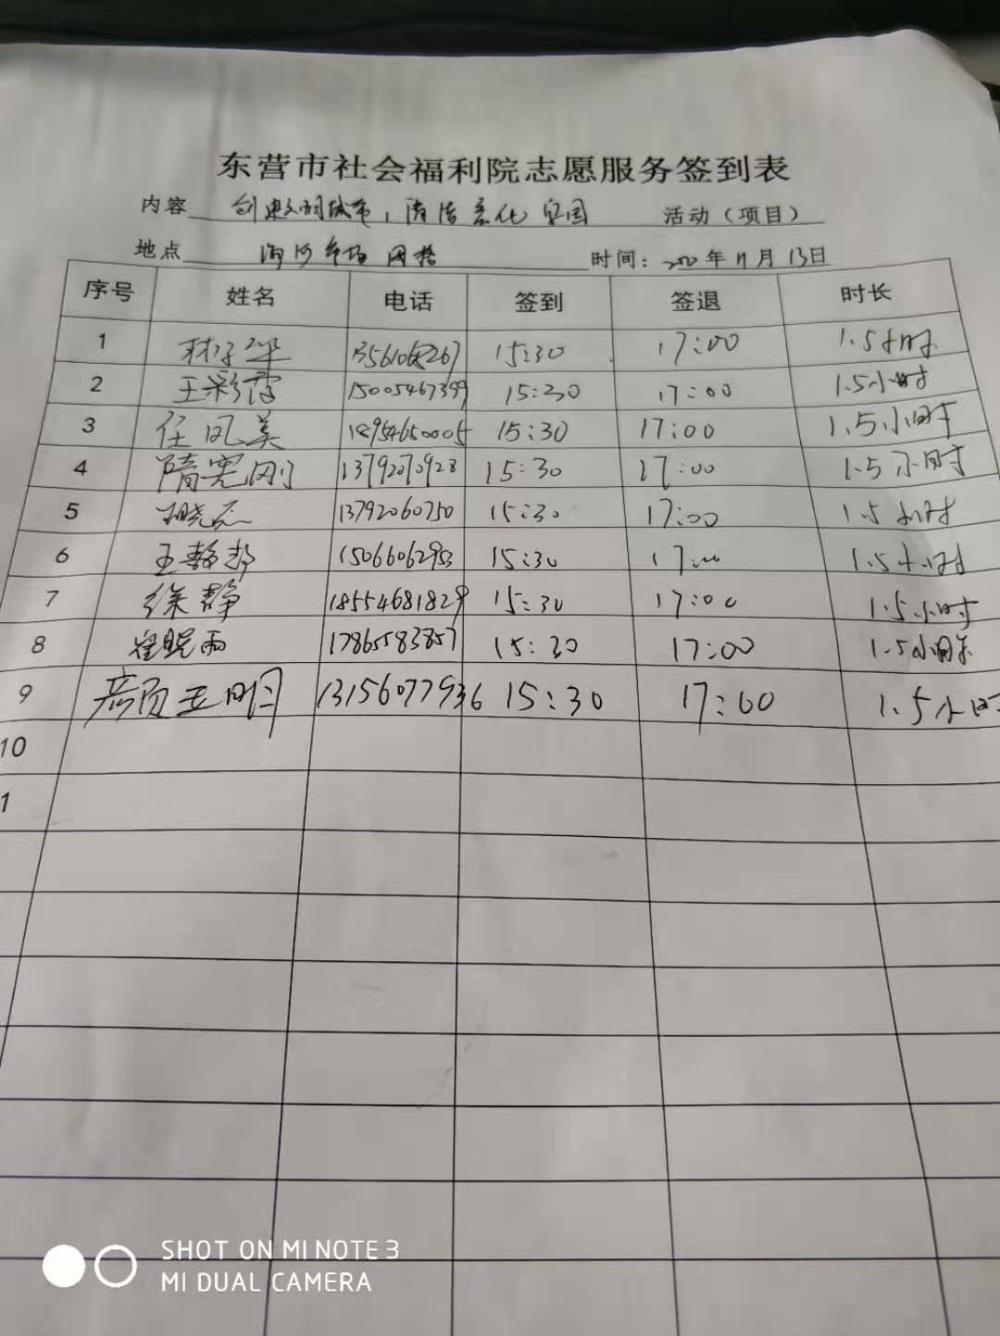 东营市社会福利院志愿服务签到表
内容 创建文明城市，清洁亮化家园 活动（项目）
地点 网格 时间：2020年11月13日
序号 姓名 电话 签到 签退 时长
1 15:30 17:00 1.5小时
2 王彩霞 15005467399 15:30 17:00 1.5小时
3 任凤美 18954650005 15:30 17:00 1.5小时
4 隋宪刚 13792070928 15:30 17:00 1.5小时
5 13792060750 15:30 17:00 1.5小时
6 王静 15066062953 15:30 17:00 1.5小时
7 徐静 18554681829 15:30 17:00 1.5小时
8 崔晓雨 17865583857 15:30 17:00 1.5小时
9 13156077936 15:30 17:00 1.5小时
10
1
SHOT ON MI NOTE 3
MI DUAL CAMERA